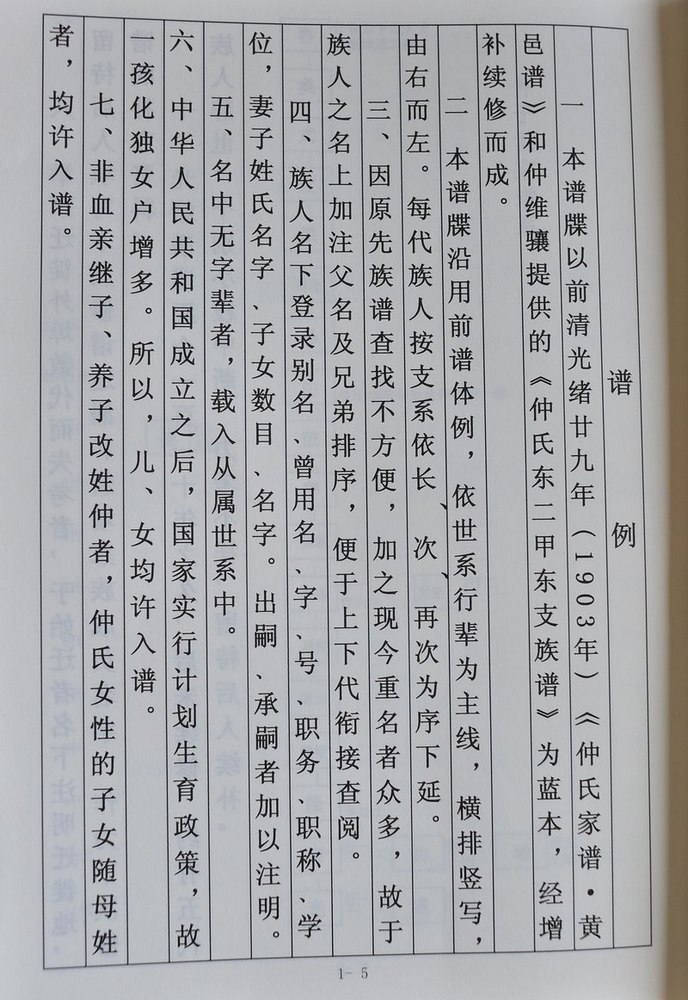 谱例
一 本谱牒以前清光绪廿九年（1903年）《仲氏家谱·黄
邑谱》和仲维骧提供的《仲氏东二甲东支族谱》为蓝本，经增
补续修而成。
二 本谱牒沿用前谱体例，依世系行辈为主线，横排竖写，
由右而左。每代族人按支系依长、次、再次为序下延。
三、因原先族谱查找不方便，加之现今重名者众多，故于
族人之名上加注父名及兄弟排序，便于上下代衔接查阅。
四、族人名下登录别名、曾用名、字、号、职务、职称、学
位，妻子姓氏名字、子女数目、名字。出嗣、承嗣者加以注明。
五、名中无字辈者，载入从属世系中。
六、中华人民共和国成立之后，国家实行计划生育政策，故
孩化独女户增多。所以，儿、女均许入谱。
七、非血亲继子、养子改姓仲者，仲氏女性的子女随母姓
者，均许入谱。
1- 5